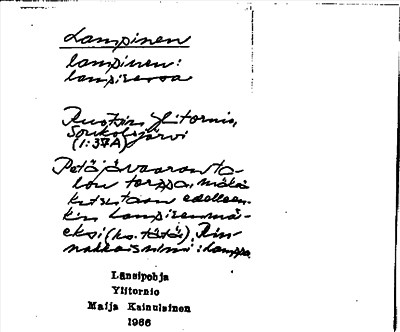 Lampinen
lampinen:
lampisessa
Ruotsin Ylitornio,
Soukolojärvi
(1:37A)
Petäjävaaran ta-
lon torppa, mäkä
kutsutaan edelleen-
kin Lampisenmä-
eksi (ks. tätä). Rin-
nakkaisnimi: Lamppa
Länsipohja
Ylitornio
Maija Kainulainen
1966